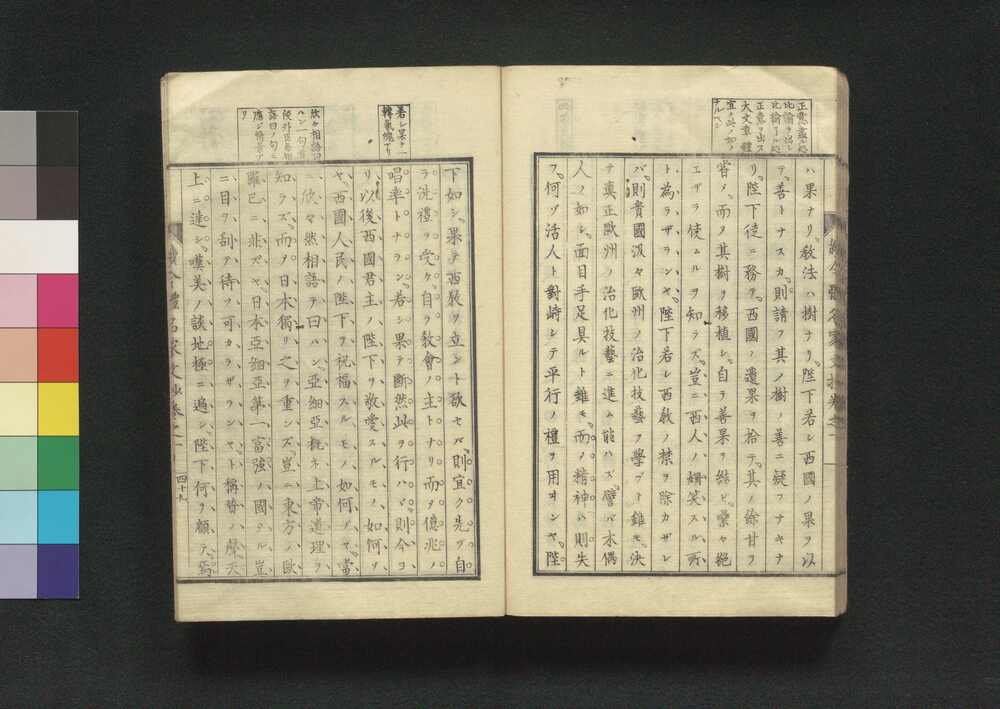 正意盡ル処
比諭ヲ出シ
比諭了ル処
正意ヲ出ス
大文章ノ體
宜ク此ノ如ク
ナルベシ
ハ果ナリ。敎法ハ樹ナリ。陛下若シ西國ノ果ヲ以
テ善トナスカ。則請フ其ノ樹ノ善ニ疑フナキナ
リ。陛下徒ニ務テ。西國ノ遺果ヲ拾テ。其ノ餘甘ヲ
嘗メ。而メ其樹ヲ移植シ。自ラ善果ヲ結ビ。蘩々絕
エザラ使ムルヲ知ラズ。豈ニ西人ノ姍笑スル所
ト為ラザランヤ。陛下若シ西敎ノ禁ヲ除カザレ
バ。則貴國汲々歐州ノ治化技藝ヲ學ブト雖モ。決
テ眞正歐洲ノ治化技藝ニ進ム能ハズ。譬バ木偶
人ノ如シ。面目手足具ルト雖モ。而ノ精神ハ則失
フ。何ゾ活人ト對峙シテ平行ノ禮ヲ用ヰンヤ。陛
若シ果テ一
轉氣魄アリ
欣々相語曰
ハン一句
應シ
下如シ果テ西敎ヲ立ント欲セバ。則宜ク先ヅ自
ラ洗禮ヲ受ケ。自ラ敎會ノ主トナリ而ヲ億兆ノ
唱率トナラン。若シ果テ斷然此ヲ行ハバ。則今ヨ
リ以後西國君主ノ陛下ヲ敬愛スルモノ。如何ゾ
ヤ。西國人民ノ陛下ヲ祝福スルモノ。如何ゾヤ。當
ニ欣々然相語テ曰ハン。亞細亞耗ネ上帝道理ヲ
知ラズ。而ヲ日本獨リ之ヲ重ンズ。豈ニ東方ノ歐
羅巴ニ非ズヤ。日本亞細亞第一富強ノ國タル。豈
ニ目ヲ刮テ待ツ可カラザランヤ。ト稱贊ノ聲。天
上ニ達シ。嘆美ノ談地極ニ遍シ。陛下何ヲ顧テ。焉
四十九